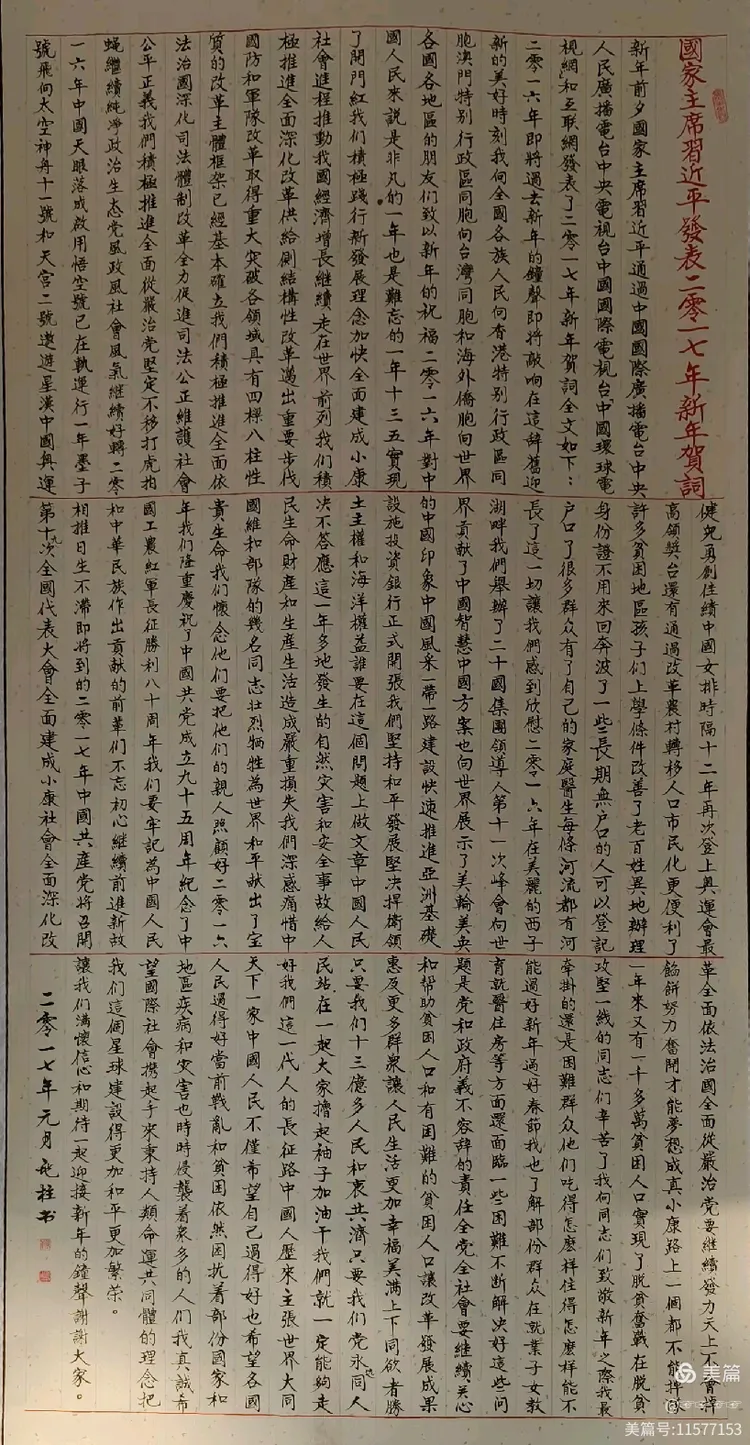 國家主席習近平發表二零一七年新年賀詞
新年前夕國家主席習近平通過中國國際廣播電台中央
人民廣播電台中央電视台中國國際電视台中國環球電
視網和互联網發表了二零一七年新年賀詞全文如下：
二零一六年即將過去新年的鐘聲即将敲响在這辞舊迎
新的美好時刻我向全國各族人民向香港特别行政區同
胞澳門特别行政區同胞向台灣同胞和海外僑胞向世界
各國各地區的朋友们致以新年的祝福二零一六年對中
國人民來説是非凡的一年也是難忘的一年十三五實現
了開門紅我们積極踐行新發展理念加快全面建成小康
社會進程推動我國經濟增長継續走在世界前列我们積
極推進全面深化改革供给側结構性改革邁出重要步伐
國防和軍隊改革取得重大突破各領域具有四樑八柱性
質的改革主體框架已經基本確立我們積極推進全面依
法治國深化司法體制改革全力促進司法公正維護社會
公平正義我們積極推進全面從嚴治党堅定不移打虎拍
蝇継續純净政治生态党風政風社會風氣继續好轉二零
一六年中國天眼落成啟用悟空號已在軌運行一年墨子
號飛向太空神舟十一號和天宫二號遨遊星漢中國奥運
健兒勇創佳績中國女排時隔十二年再次登上奥運會最
高領奬台還有通過改革農村轉移人口市民化更便利了
許多貧困地區孩子们上學條件改善了老百姓異地辦理
身份證不用來回奔波了一些長期無户口的人可以登記
户口了很多群众有了自己的家庭醫生每條河流都有河
長了這一切讓我們感到欣慰二零一六年在美麗的西子
湖畔我們舉辦了二十國集團領導人第十一次峰會向世
界貢献了中國智慧中國方案也向世界展示了美輪美奂
的中國印象中國風采一帶一路建設快速推進亞洲基礎
設施投資銀行正式開張我們堅持和平發展堅决捍衛領
土主權和海洋權益誰要在這個問題上做文章中國人民
决不答應這一年多地發生的自然灾害和安全事故给人
民生命財產和生產生活造成嚴重損失我們深感痛惜中
國維和部隊的幾名同志壮烈牺牲為世界和平献出了宝
贵生命我们懷念他们要把他们的親人照顧好二零一六
年我们隆重慶祝了中國共党成立九十五周年紀念了中
國工農紅軍長征勝利八十周年我们要牢記為中國人民
和中華民族作出貢献的前輩们不忘初心継續前進新故
相推日生不滞即將到的二零一七年中國共産党將召開
第十九次全國代表大會全面建成小康社會全面深化改
革全面依法治國全面從嚴治党要継續發力天上不會掉
餡餅努力奮鬥才能夢想成真小康路上一個都不能掉隊
一年來又有一千多萬貧困人口實現了脱貧奮戰在脱貧
攻堅一线的同志们辛苦了我向同志们致敬新年之際我最
牵掛的還是困難群众他们吃得怎麽樣住得怎麽樣能不
能過好新年過好春節我也了解部份群众在就業子女教
育就醫住房等方面還面臨一些困難不断解决好這些问
題是党和政府義不容辞的責任全党全社會要继續关心
和幫助貧困人口和有困難的貧困人口讓改革發展成果
惠及更多群衆讓人民生活更加幸福美满上下同欲者勝
只要我们十三億多人民和衷共濟只要我们党永远同人
民站在一起大家撸起袖子加油干我們就一定能夠走
好我們這一代人的長征路中國人歷來主張世界大同
天下一家中國人民不僅希望自己過得好也希望各國
人民過得好當前戰亂和貧困依然困扰着部份國家和
地區疾病和灾害也時時侵襲着衆多的人们我真誠希
望國際社會携起手來秉持人類命運共同體的理念把
我们這個星球建設得更加和平更加繁荣。
讓我们满懷信心和期待一起迎接新年的鐘聲謝謝大家。
二零一七年元月
柱书
美篇
美篇号:11577153